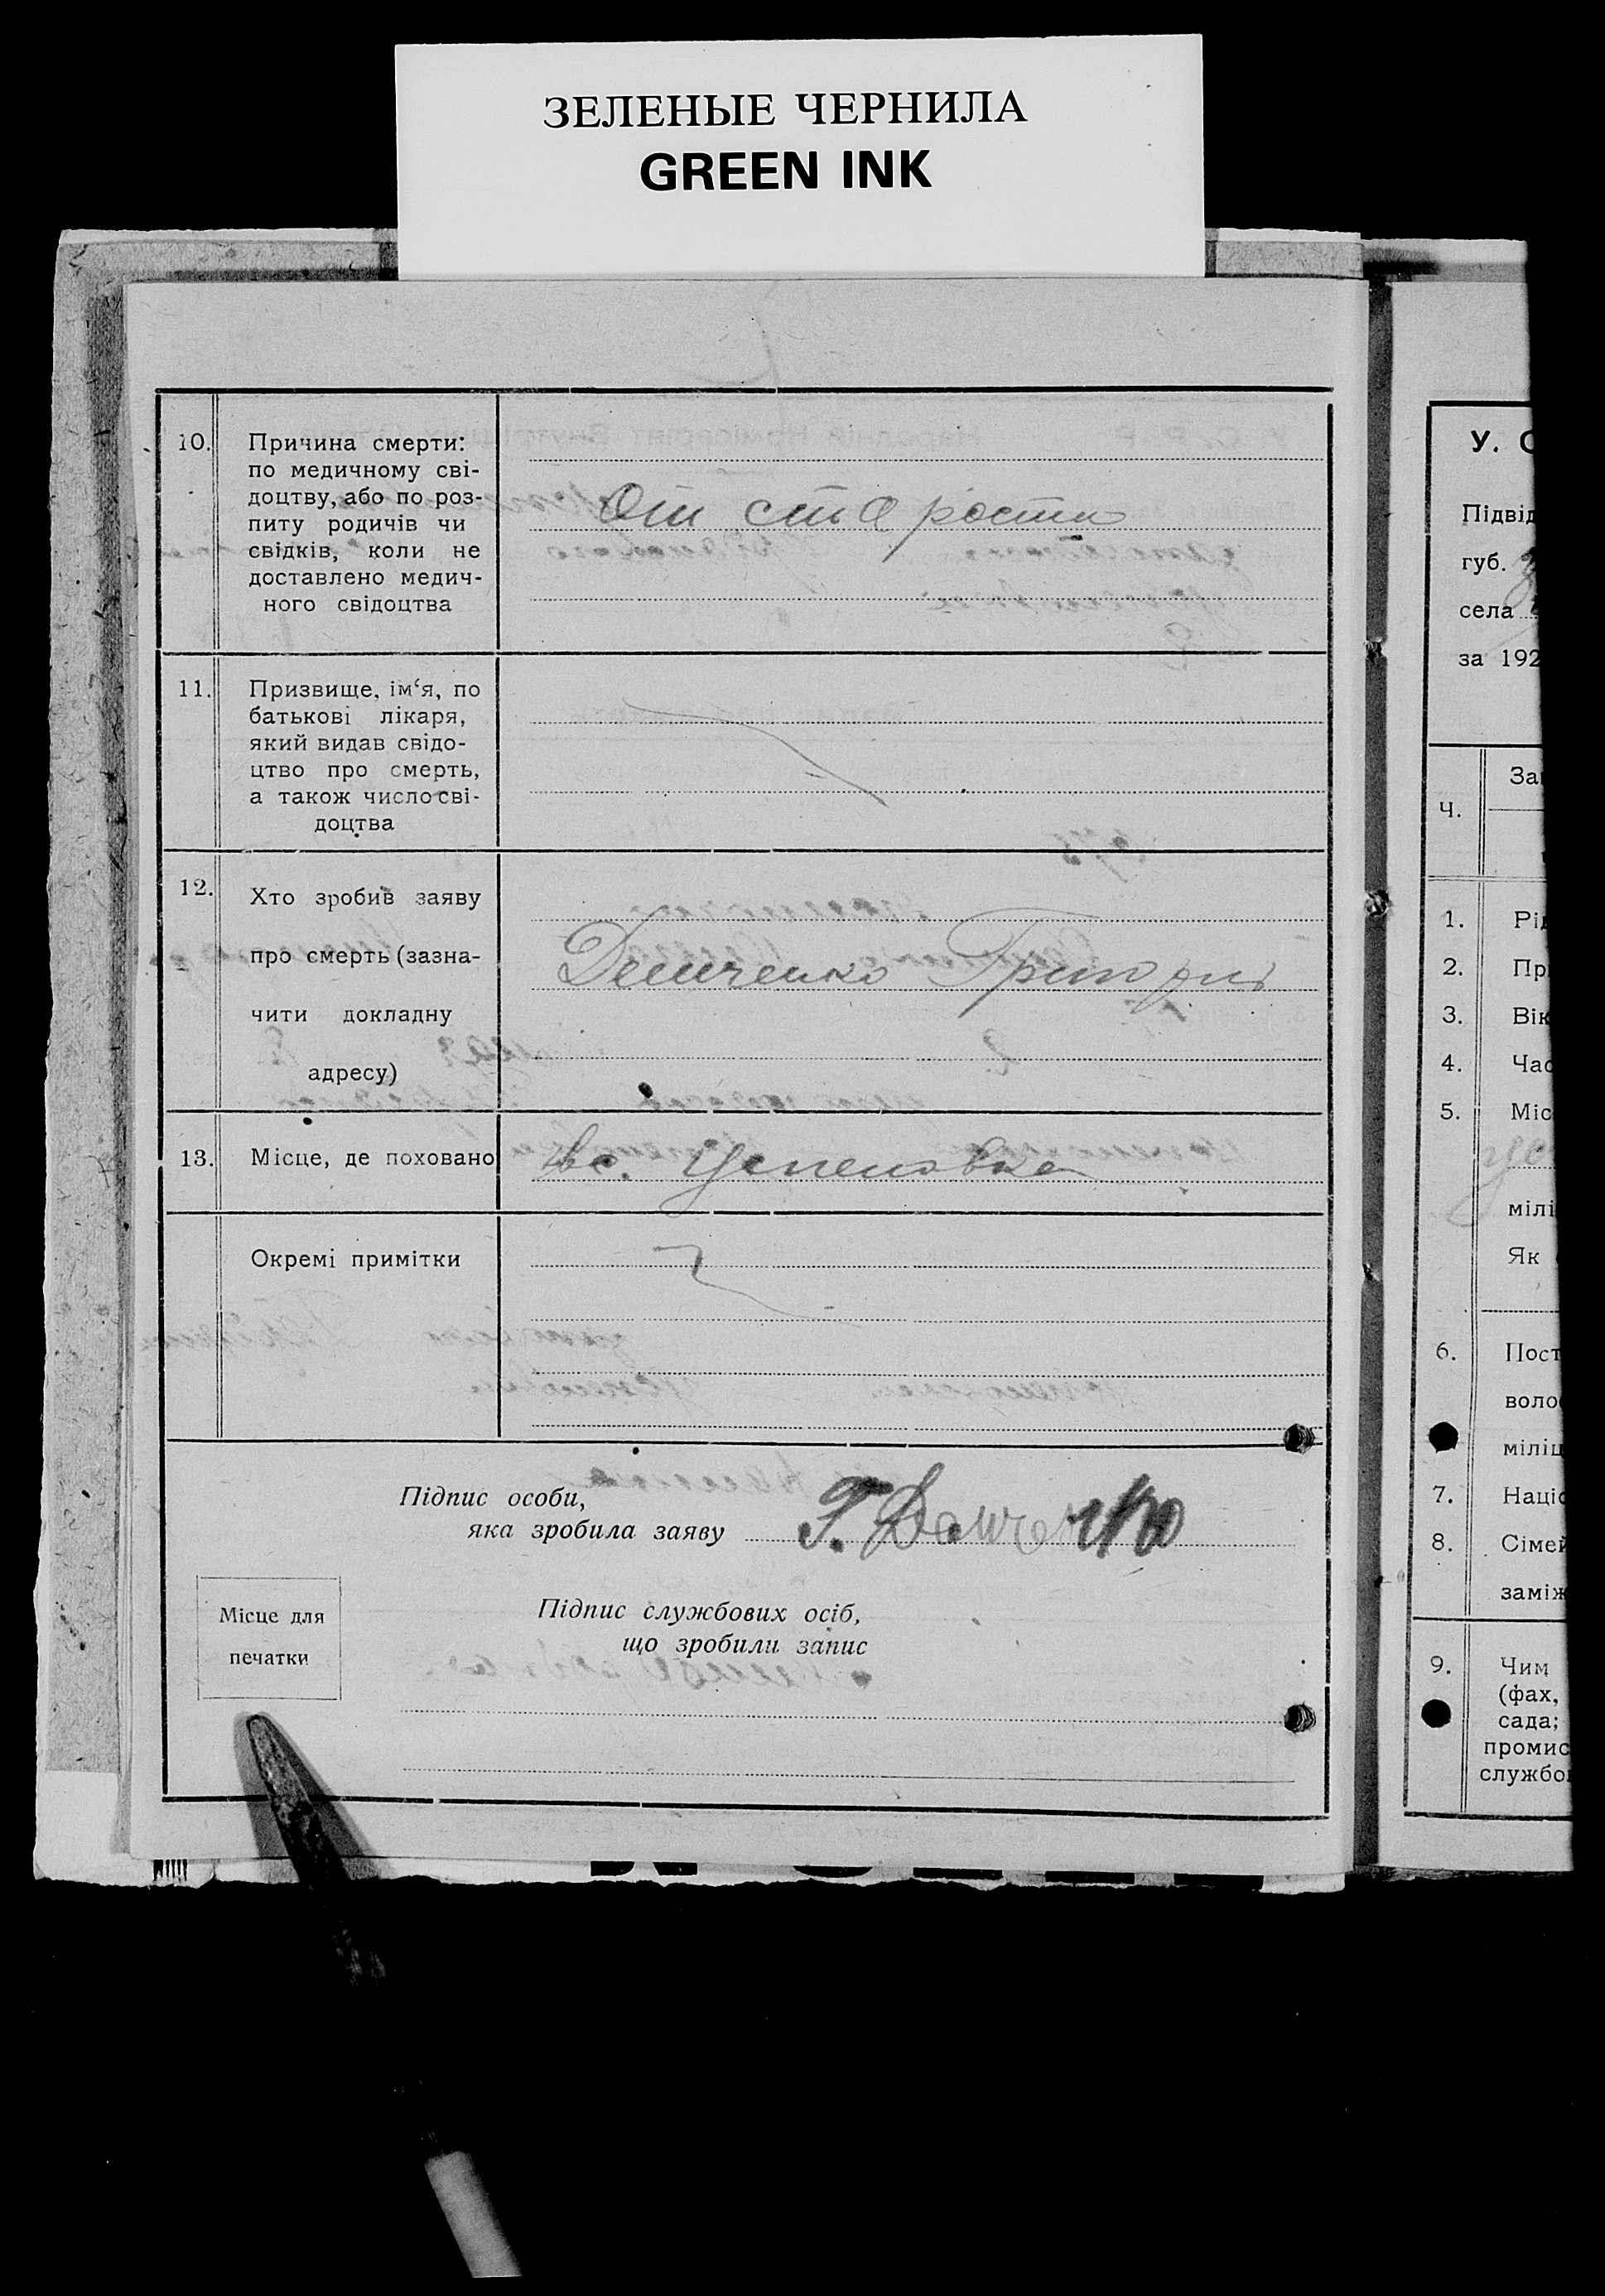 ЗЕЛЕНЫЕ ЧЕРНИЛА
GREEN INK
10. Причина смерти:
по медичному сві-
доцтву, або по роз-
питу родичів чи
свідків, коли не
доставлено медич-
ного свідоцтва
От старости
11. Призвище, ім‘я, по
батькові лікаря,
який видав свідо-
цтво про смерть,
а також число сві-
доцтва
12. Хто зробив заяву
про смерть (зазна-
чити докладну
адресу)
Демченко Григорий
13. Місце, де поховано
в с. Успеновка
Окремі примітки
Підпис особи,
яка зробила заяву Г. Демченко
Місце для
печатки
Підпис службових осіб,
що зробили запис
У. С
Підвід
губ.
села
за 192
Ч.
За
1. Рід
2. Пр
3. Вік
4. Час
5. Міс
міліц
Як
6. Пост
воло
міліц
7. Націо
8. Сімей
заміж
9. Чим
(фах,
сада;
промис
службо